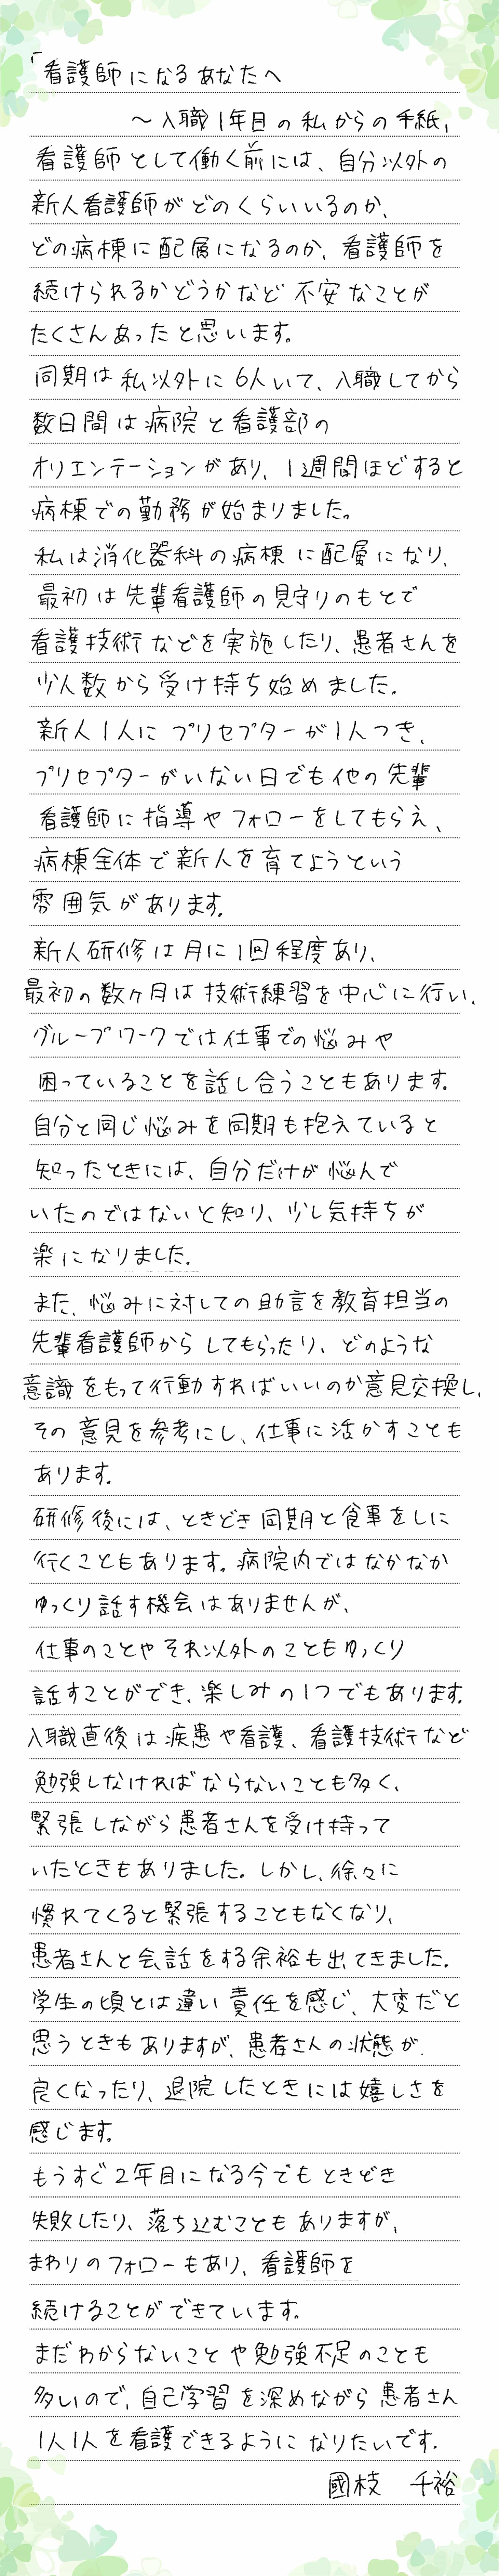 「看護師になるあなたへ
～入職1年目の私からの手紙」
看護師として働く前には、自分以外の
新人看護師がどのくらいいるのか、
どの病棟に配属になるのか、看護師を
続けられるかどうかなど不安なことが
たくさんあったと思います。
同期は私以外に6人いて、入職してから
数日間は病院と看護部の
オリエンテーションがあり、1週間ほどすると
病棟での勤務が始まりました。
私は消化器科の病棟に配属になり、
最初は先輩看護師の見守りのもとで
看護技術などを実施したり、患者さんを
少人数から受け持ち始めました。
新人1人にプリセプターが1人つき、
プリセプターがいない日でも他の先輩
看護師に指導やフォローをしてもらえ、
病棟全体で新人を育てようという
雰囲気があります。
新人研修は月に1回程度あり、
最初の数ヶ月は技術練習を中心に行い、
グループワークでは仕事での悩みや
困っていることを話し合うこともあります。
自分と同じ悩みを同期も抱えていると
知ったときには、自分だけが悩んで
いたのではないと知り、少し気持ちが
楽になりました。
また、悩みに対しての助言を教育担当の
先輩看護師からしてもらったり、どのような
意識をもって行動すればいいのか意見交換し、
その意見を参考にし、仕事に活かすことも
あります。
研修後には、ときどき同期と食事をしに
行くこともあります。病院内ではなかなか
ゆっくり話す機会はありませんが、
仕事のことやそれ以外のこともゆっくり
話すことができ、楽しみの1つでもあります。
入職直後は疾患や看護、看護技術など
勉強しなければならないことも多く、
緊張しながら患者さんを受け持って
いたときもありました。しかし、徐々に
慣れてくると緊張することもなくなり、
患者さんと会話をする余裕も出てきました。
学生の頃とは違い責任を感じ、大変だと
思うときもありますが、患者さんの状態が
良くなったり、退院したときには嬉しさを
感じます。
もうすぐ2年目になる今でもときどき
失敗したり、落ち込むこともありますが、
まわりのフォローもあり、看護師を
続けることができています。
まだわからないことや勉強不足のことも
多いので、自己学習を深めながら患者さん
1人1人を看護できるようになりたいです。
國枝　千裕